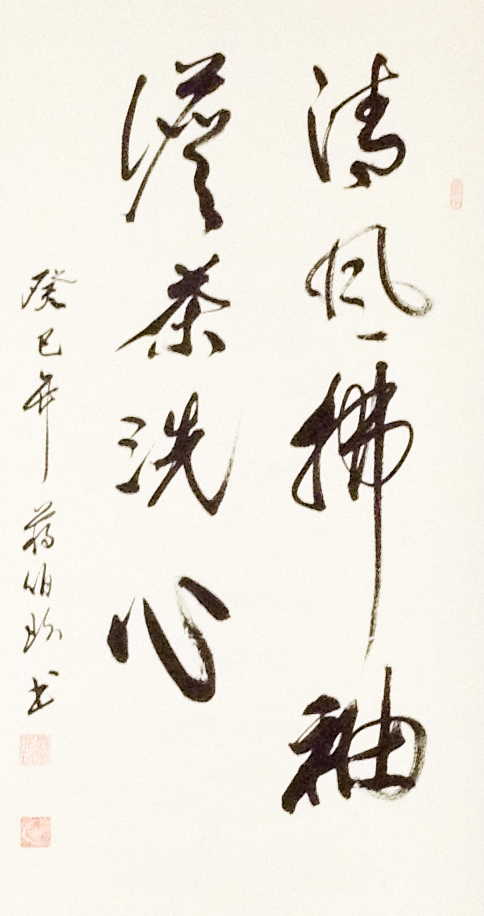 清风拂袖
茶洗心
癸巳年 蒋伯珍书